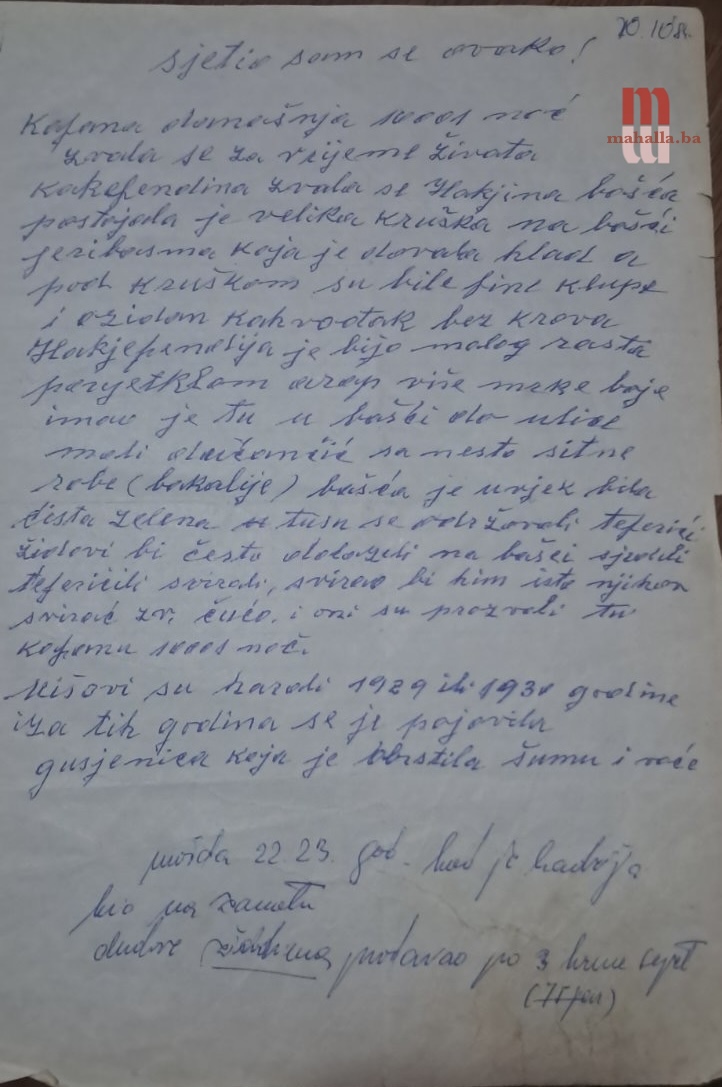 20.10.84.
mahalla.ba
sjetio sam se ovako!
Kafana domašnja 1000 1 noć
zvala se za vrijeme života
Hakjina bošća
postojada je velika kruška na bošći
jeribasma koja je davala hlad a
pod kruškom su bile fine klupe
i ozidan kahvođak bez krova
je bijo malog rasta
arap više mrke boje
imao je tu u bašći do ulice
mali dućančić sa nesto sitne
robe (bakalije) bašća je uvjek bila
čista zelena tusu se održavali teferići
židovi bi često dolazili na bašći sjedili
teferičili svirali, svirao bi him isto njihov
svirać zv. ćućo. i oni su prozvali tu
kafanu 1000 1 noć.
Mišovi su harali 1929 ili 1930 godine
iza tih godina se je pojavila
gusjenica koja je obrstila šumu i voće
možda 22 23. god. kod je
bio na zanatu
dudove prodavao po 3